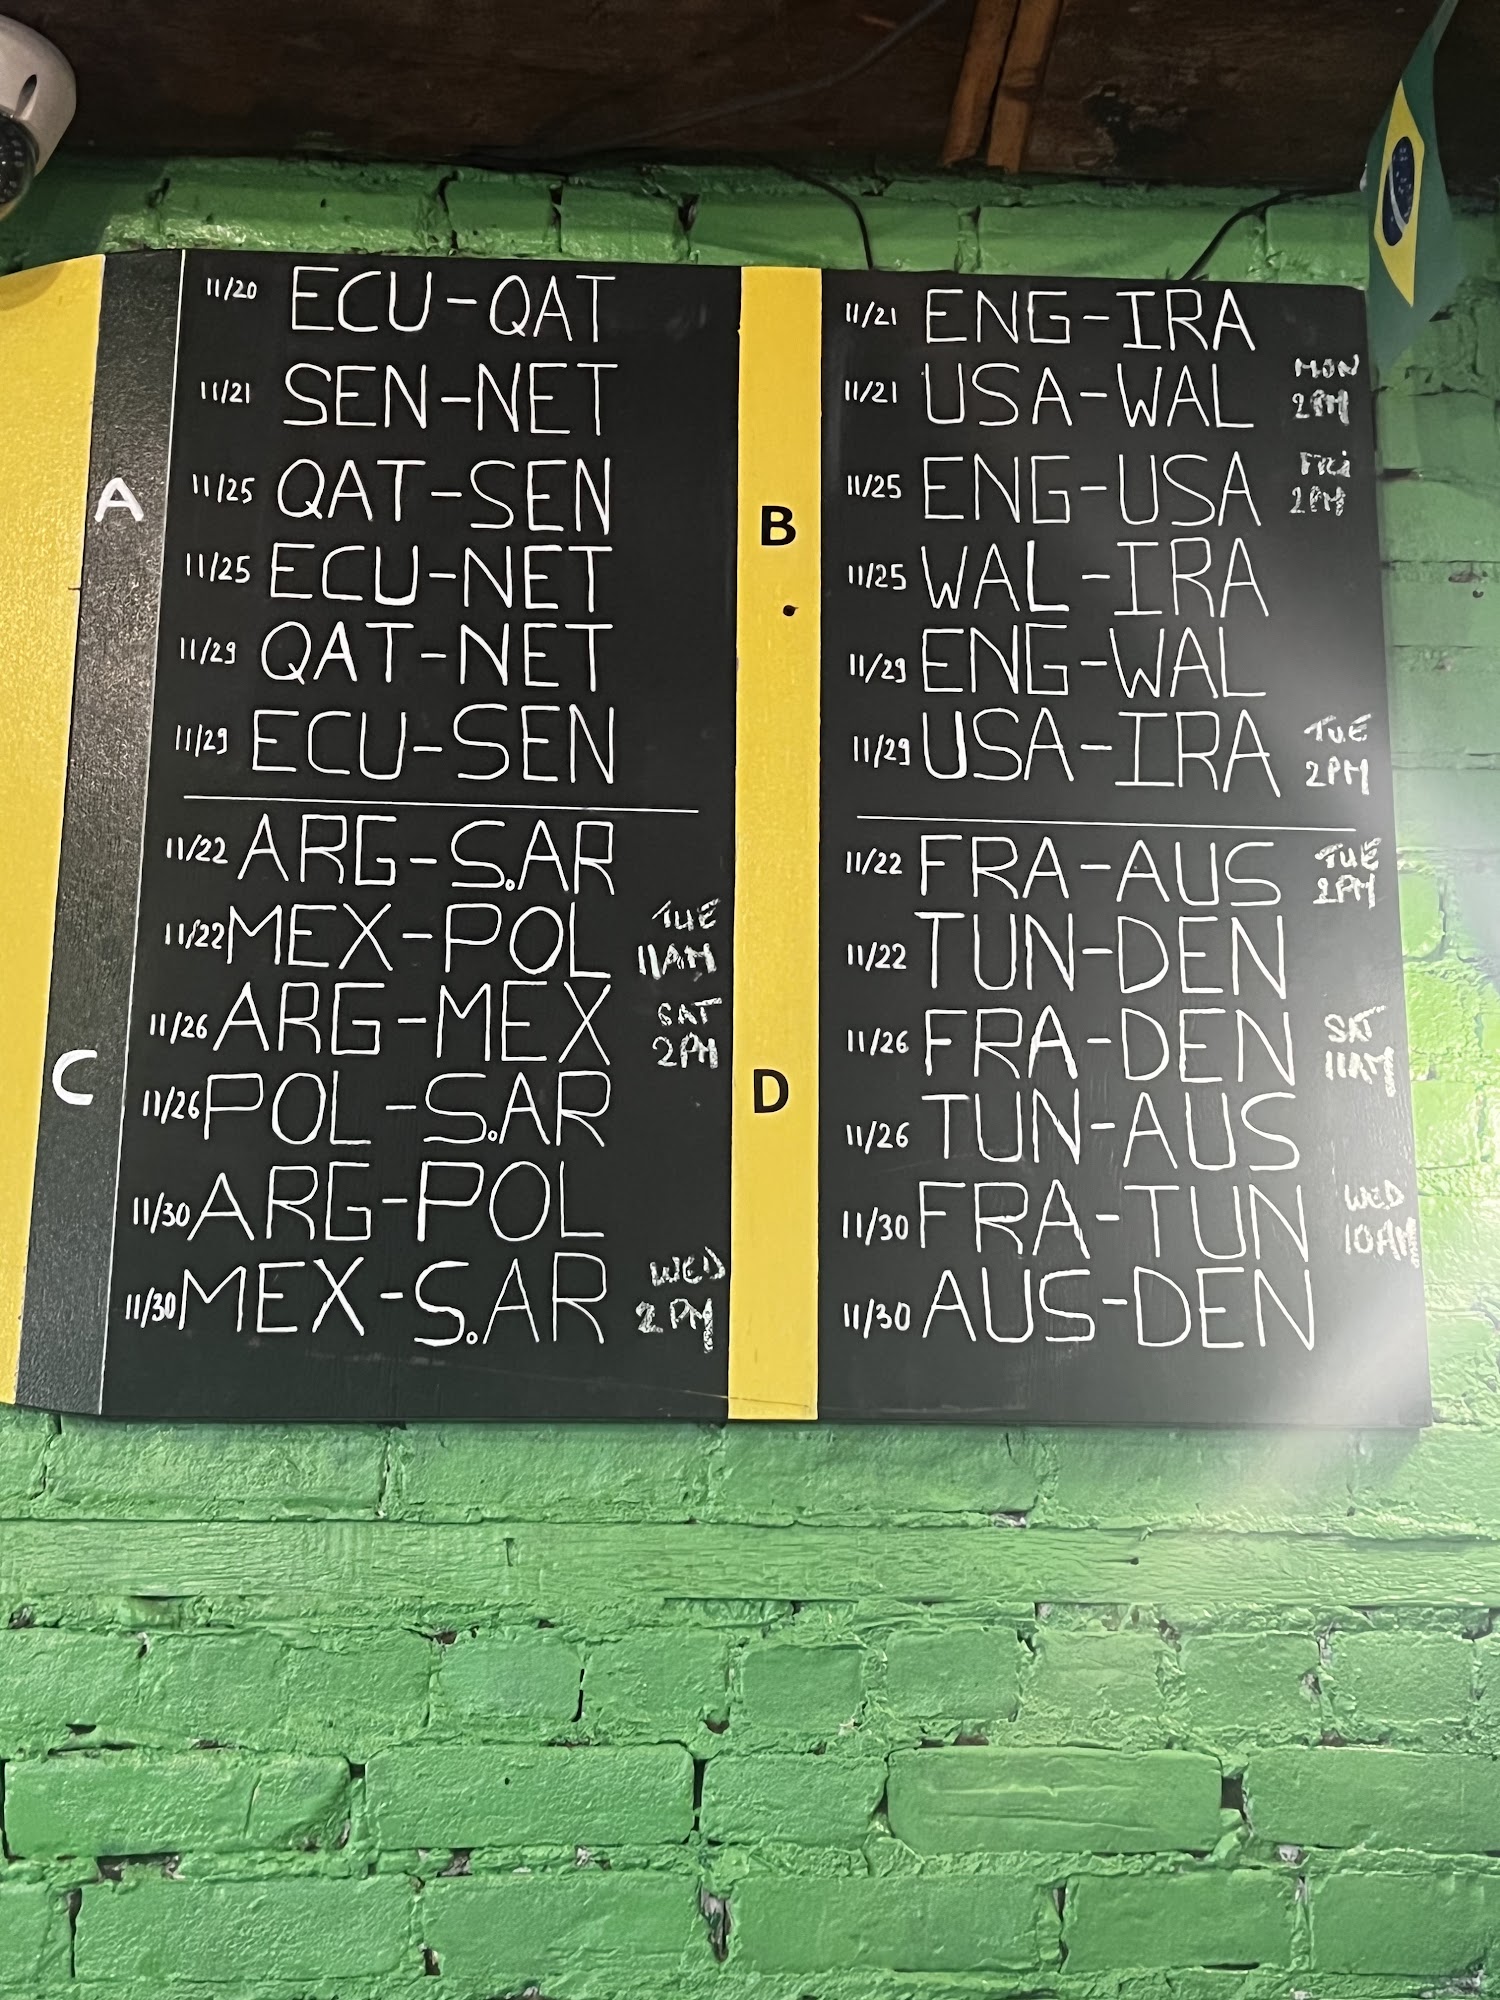 A
11/20 ECU-QAT
11/21 SEN-NET
11/25 QAT-SEN
11/25 ECU-NET
11/29 QAT-NET
11/29 ECU-SEN
B
11/21 ENG-IRA
11/21 USA-WAL MON 2PM
11/25 ENG-USA FRI 2PM
11/25 WAL-IRA
11/29 ENG-WAL
11/29 USA-IRA TUE 2PM
C
11/22 ARG-S.AR
11/22 MEX-POL TUE 11AM
11/26 ARG-MEX SAT 2PM
11/26 POL-S.AR
11/30 ARG-POL
11/30 MEX-S.AR WED 2PM
D
11/22 FRA-AUS TUE 2PM
11/22 TUN-DEN
11/26 FRA-DEN SAT 11AM
11/26 TUN-AUS
11/30 FRA-TUN WED 10AM
11/30 AUS-DEN